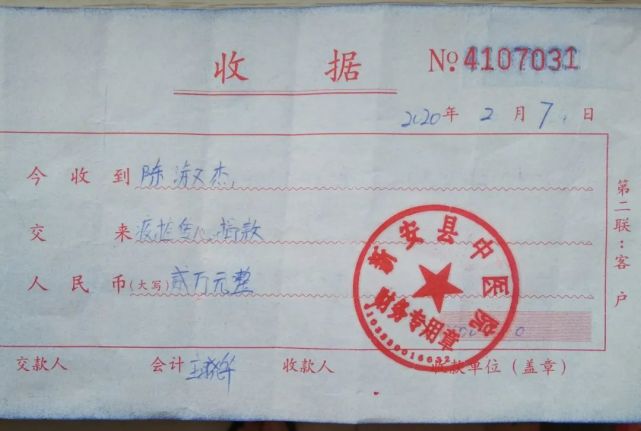 收据 № 4107031
2020年 2月 7日
今收到 陈淑杰
交来 疫情 捐款
人民币(大写) 贰万元整
新安县中医院
财务专用章
交款人 会计 收款人 收款单位(盖章)
第二联:客户